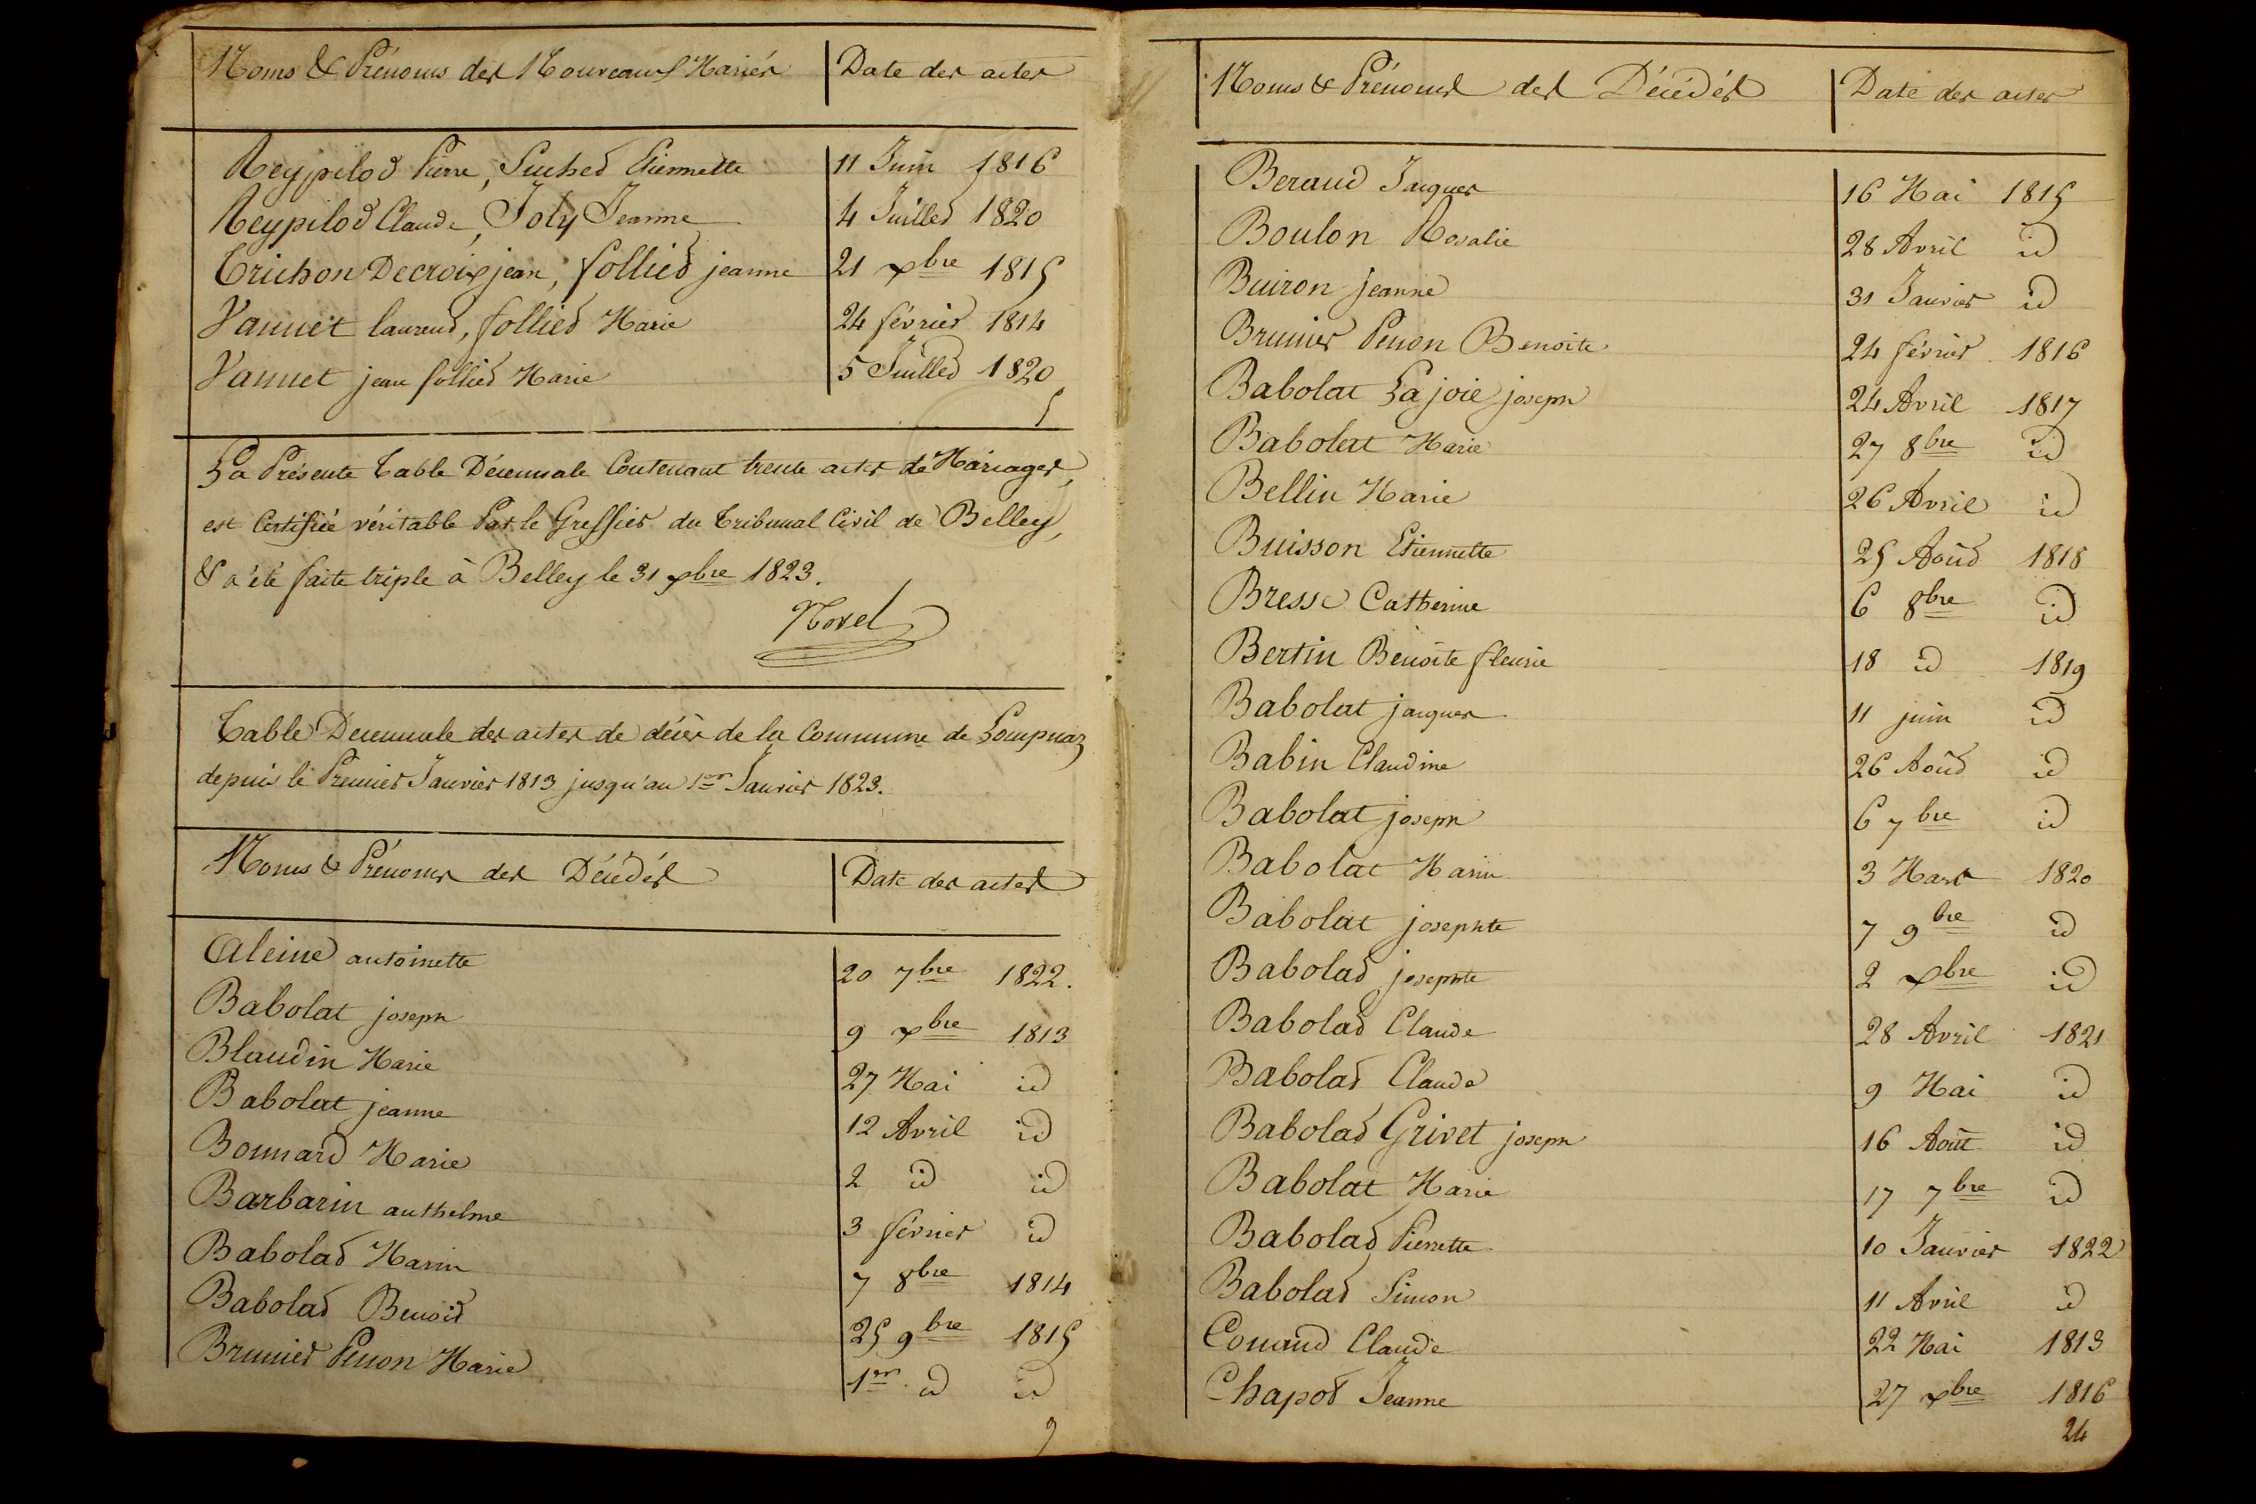 Noms & Prénoms des Nouveaux Mariés Date des actes
Reypilod Pierre, Suched Etiennette 11 Juin 1816
Reypilod Claude, Joly Jeanne 4 Juilled 1820
Trichon Decroix jean, follied jeanne 21 xbre 1815
Vannet laurend, follied Marie 24 février 1814
Vannet jean follied Marie 5 Juilled 1820
5
La Présente Table Décennale Contenant trente actes de Mariages,
est Certifiée véritable Par le Greffier du Tribunal Civil de Belley,
& a été faite triple à Belley le 31 xbre 1823.
Morel
Table Decennale des actes de décès de la Commune de Lompnaz
depuis le Premier Janvier 1813 jusqu'au 1er Janvier 1823.
Noms & Prénoms des Décédés Date des actes
Aleine antoinette 20 7bre 1822.
Babolat joseph 9 xbre 1813
Blaudin Marie 27 Mai id
Babolat jeanne 12 Avril id
Bonnard Marie 2 id id
Barbarin anthelme 3 février id
Babolad Marin 7 8bre 1814
Babolad Benoid 25 9bre 1815
Brunier Penon Marie 1er id id
9
Noms & Prénoms des Décédés Date des actes
Beraud Jacques 16 Mai 1815
Boulon Rosalie 28 Avril id
Buiron jeanne 31 Janvier id
Brunier Penon Benoite 24 février 1816
Babolat Lajoie joseph 24 Avril 1817
Babolat Marie 27 8bre id
Bellin Marie 26 Avril id
Buisson Etiennette 25 Aoûd 1818
Bresse Catherine 6 8bre id
Bertin Benoite fleurie 18 id 1819
Babolat jacques 11 juin id
Babin Claudine 26 Aoûd id
Babolat joseph 6 7bre id
Babolat Marin 3 Mars 1820
Babolat josephte 7 9bre id
Babolad josephte 2 xbre id
Babolad Claude 28 Avril 1821
Babolad Claude 9 Mai id
Babolad Grivet joseph 16 Août id
Babolat Marie 17 7bre id
Babolad Pierrette 10 Janvier 1822
Babolad Simon 11 Avril id
Conand Claude 22 Mai 1813
Chapod Jeanne 27 xbre 1816
24